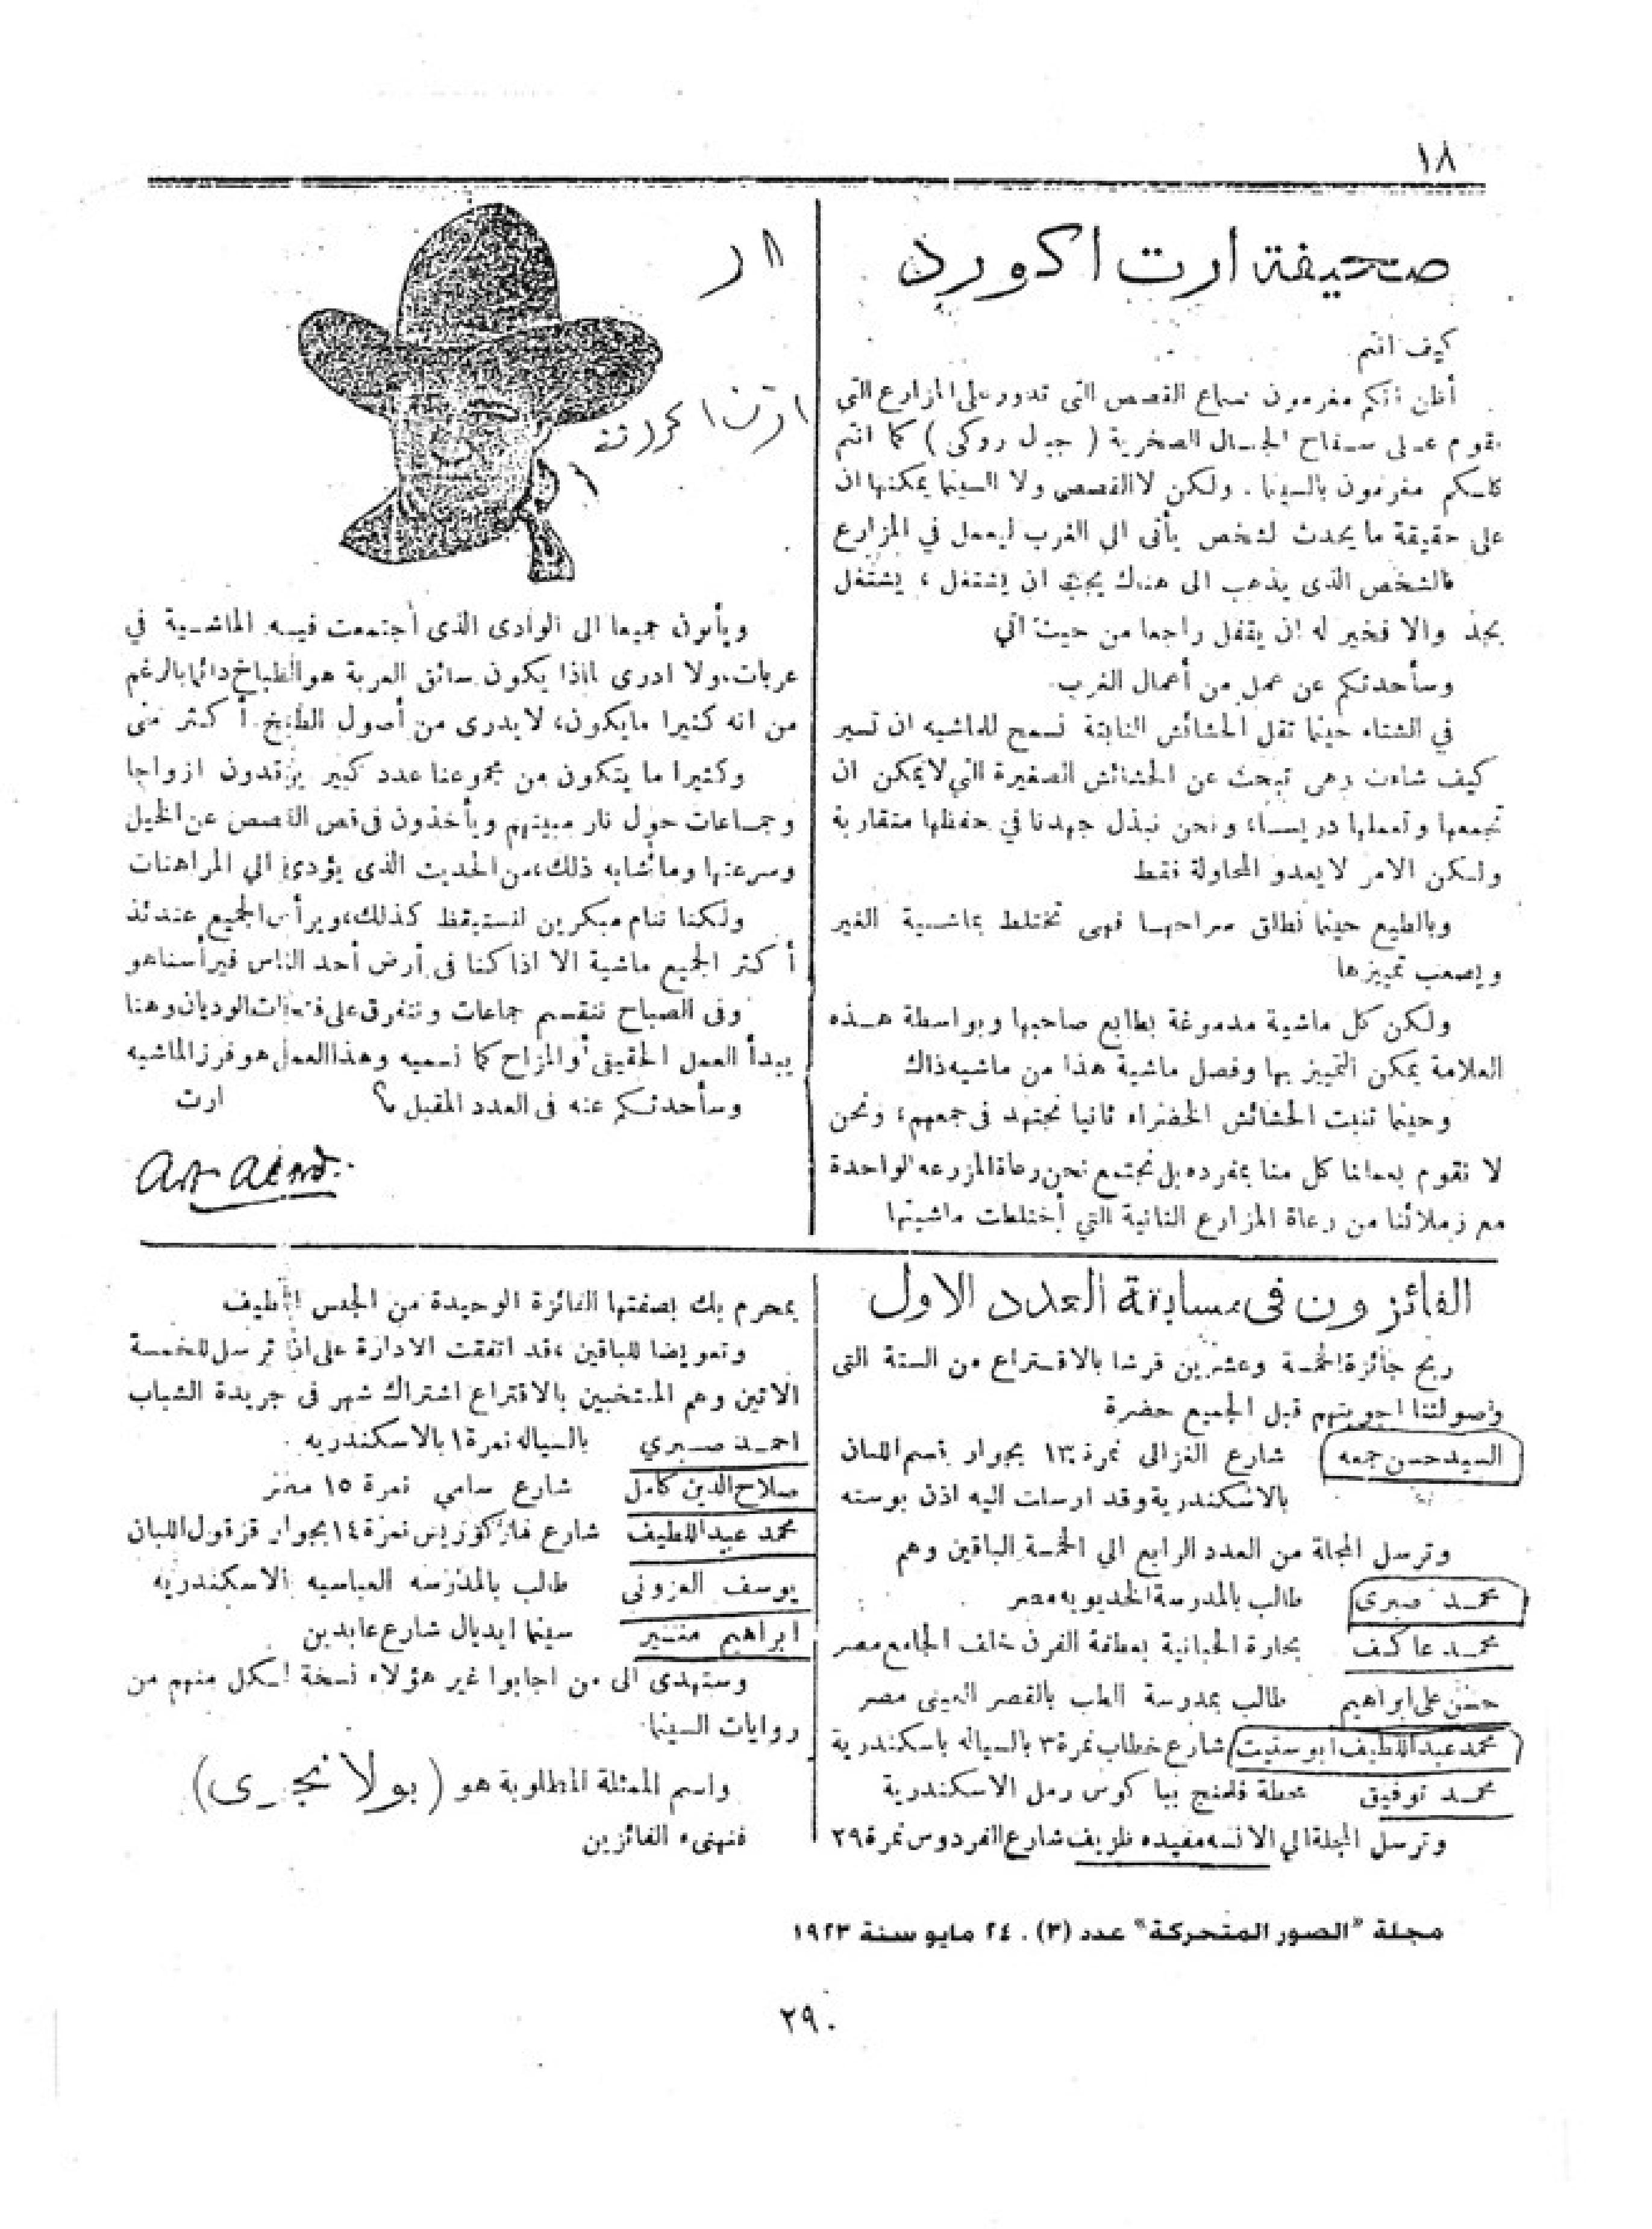 ١٨
صحيفة ارت اكورد
كيف انتم
أظن انكم مغرمون بسماع القصص التى تدور على المزارع التى
تقوم على سفاح الجبال الصخرية ( جبل روكى ) كما انتم
كلكم مغرمون بالسينما . ولكن لا القصص ولا السينما يمكنها ان
على حقيقة ما يحدث لشخص يأتى الى الغرب ليعمل في المزارع
فالشخص الذى يذهب الى هناك يجب ان يشتغل ، يشتغل
بجد والا فخير له ان يقفل راجعا من حيث اتي
وسأحدثكم عن عمل من أعمال الغرب
في الشتاء حينما تقل الحشائش النابتة نسمح للماشيه ان تسير
كيف شاءت وهى تبحث عن الحشائش الصغيرة التي لا يمكن ان
نجمعها ونعملها دريسا، ونحن نبذل جهدنا في حفظها متقاربة
ولكن الامر لا يعدو المحاولة فقط
وبالطبع حينما نطلق سراحها فهى تختلط بماشية الغير
ويصعب تمييزها
ولكن كل ماشية مدموغة بطابع صاحبها وبواسطة هذه
العلامة يمكن التمييز بها وفصل ماشية هذا من ماشيه ذاك
وحينما تنبت الحشائش الخضراء ثانيا نجتهد فى جمعهم، ونحن
لا نقوم بعملنا كل منا بمفرده بل نجتمع نحن رعاة المزرعه الواحدة
مع زملائنا من رعاة المزارع الثانية التي أختلطت ماشيتها
ويأتون جميعا الى الوادى الذى أجتمعت فيه الماشية في
عربات، ولا ادرى لماذا يكون سائق العربة هو الطباخ دائما بالرغم
من انه كثيرا ما يكون، لا يدرى من أصول الطبخ أكثر منى
وكثيرا ما يتكون من مجموعنا عدد كبير يرقدون ازواجا
وجماعات حول نار مبيتهم ويأخذون فى قص القصص عن الخيل
وسرعتها وما شابه ذلك، من الحديث الذى يؤدى الي المراهنات
ولكنا ننام مبكرين لنستيقظ كذلك، ويرأس الجميع عندئذ
أكثر الجميع ماشية الا اذا كنا فى أرض أحد الناس فيرأسنا هو
وفى الصباح ننقسم جماعات ونتفرق على الوديان وهنا
يبدأ العمل الحقيقى أو المزاح كما نسميه وهذا العمل هو فرز الماشيه
وسأحدثكم عنه فى العدد المقبل ارت
Art Acord.
الفائزون فى مسابقة العدد الاول
ربح جائزة الخمسة وعشرين قرشا بالاقتراع من الستة التى
وصولتنا اجوبتهم قبل الجميع حضرة
السيد حسن جمعه شارع الغزالى نمرة ١٣ بجوار قسم اللبان
بالاسكندرية وقد ارسلت اليه اذن بوسته
وترسل المجلة من العدد الرابع الي الخمسة الباقين وهم
محمد صبرى طالب بالمدرسة الخديويه مصر
محمد عاكف بحارة الحبانية بعطفة الفرن خلف الجامع مصر
حسن على ابراهيم طالب بمدرسة الطب بالقصر العينى مصر
محمد عبد اللطيف ابو ستيت شارع خطاب نمرة ٣ بالسياله باسكندرية
محمد توفيق محطة فلمنج بباكوس رمل الاسكندرية
وترسل المجلة الي الانسه مفيده ظريف شارع الفردوس نمرة ٢٩
بمحرم بك بصفتها الفائزة الوحيدة من الجنس اللطيف
وتعويضا للباقين ، قد اتفقت الادارة على ان ترسل للخمسة
الاتين وهم المنتخبين بالاقتراع اشتراك شهر فى جريدة الشباب
احمد صبري بالسياله نمرة ١ بالاسكندريه .
صلاح الدين كامل شارع سامي نمرة ١٥ مصر
محمد عبد اللطيف شارع نمرة ١٤ بجوار قرقول اللبان
يوسف العزونى طالب بالمدرسه العباسيه الاسكندريه
ابراهيم سينما ايديال شارع عابدين
وستهدى الى من اجابوا غير هؤلاء نسخة لكل منهم من
روايات السينما
واسم الممثلة المطلوبة هو ( بولا نجرى )
فنهنىء الفائزين
مجلة "الصور المتحركة" عدد (٣) . ٢٤ مايو سنة ١٩٢٣
٢٩٠